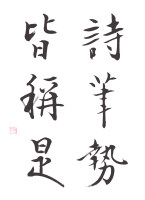 詩筆勢
皆稱是